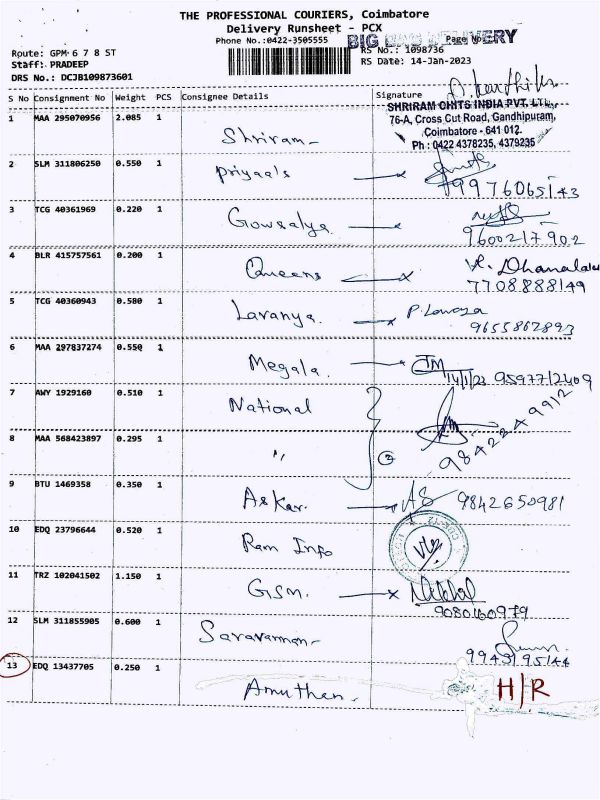 THE PROFESSIONAL COURIERS, Coimbatore
Delivery Runsheet - PCX
Phone No.:0422-3505555
BIG BAG DELIVERY
Page No
Route: GPM 6 7 8 ST
Staff: PRADEEP
DRS No.: DCJB109873601
RS No.: 1098736
RS Date: 14-Jan-2023
S No Consignment No Weight PCS Consignee Details Signature
SHRIRAM CHITS INDIA PVT. LTD.
76-A, Cross Cut Road, Gandhipuram,
Coimbatore - 641 012.
Ph : 0422 4378235, 4379235
1 MAA 295070956 2.085 1 Shriram
2 SLM 311806250 0.550 1 Priyaa's 99976065143
3 TCG 40361969 0.220 1 Gowsalya 9600217902
4 BLR 415757561 0.200 1 Queens 7708888149
5 TCG 40360943 0.580 1 Lavanya. 9655862893
6 MAA 297837274 0.550 1 Megala. JM
14/1/23 9597712409
7 AWY 1929160 0.510 1 National 9842249912
8 MAA 568423897 0.295 1 " 2
9 BTU 1469358 0.350 1 Askar. AS 9842650981
10 EDQ 23796644 0.520 1 Ram Info
11 TRZ 102041502 1.150 1 GSM.
9080160979
12 SLM 311855905 0.600 1 Saravannan
9943195144
13 EDQ 13437705 0.250 1 Amuthan. H/R